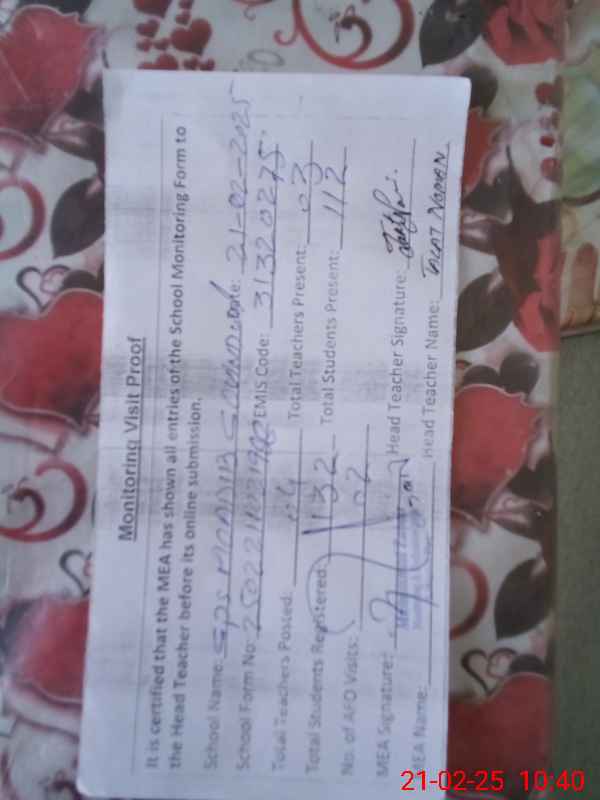 Monitoring Visit Proof
It is certified that the MEA has shown all entries of the School Monitoring Form to
the Head Teacher before its online submission.
School Name: GPS Date: 21-02-2025
School Form No: EMIS Code: 31320275
Total Teachers Posted: 04 Total Teachers Present: 03
Total Students Registered: 132 Total Students Present: 112
No. of AFO Visits: 02
MEA Signature: Head Teacher Signature:
MEA Name: Head Teacher Name:
21-02-25 10:40